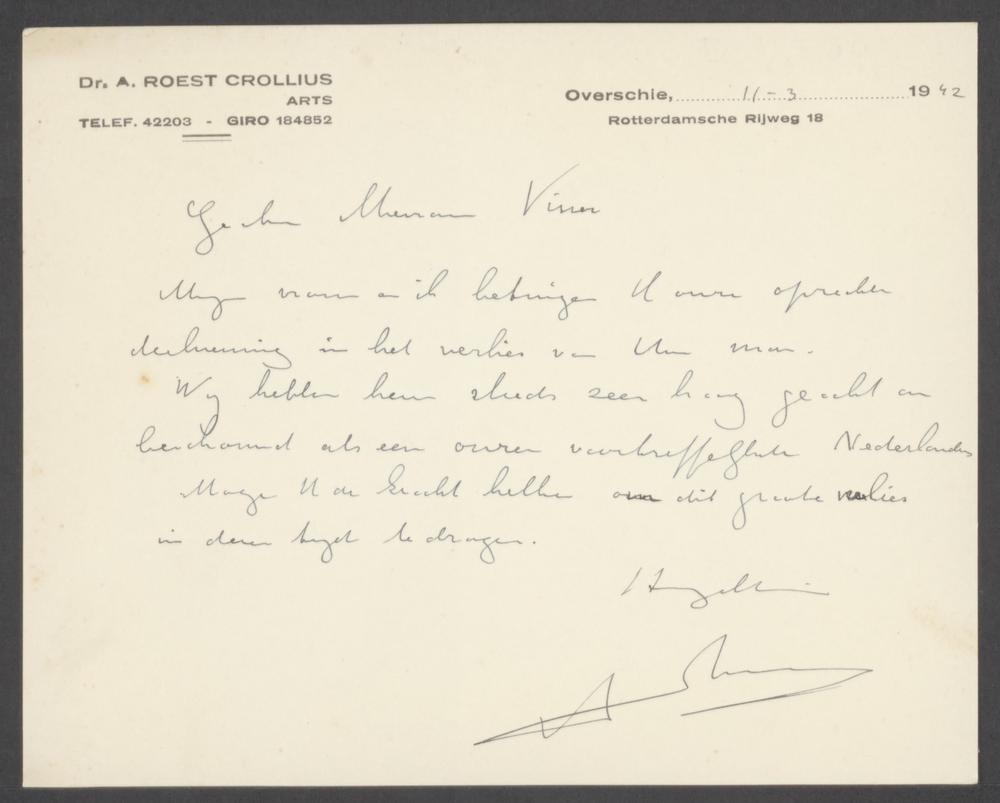 Dr. A. ROEST CROLLIUS
ARTS
TELEF. 42203 - GIRO 184852
Overschie, 11-3 1942
Rotterdamsche Rijweg 18
Geachte Mevrouw Visser
Mijn vrouw en ik betuigen U onze oprechte
deelneming in het verlies van Uw man.
Wij hebben hem steeds zeer hoog geacht en
beschouwd als een onzer voortreffelijkste Nederlanders
Moge U de kracht hebben om dit groote verlies
in dezen tijd te dragen.
Hoogachtend